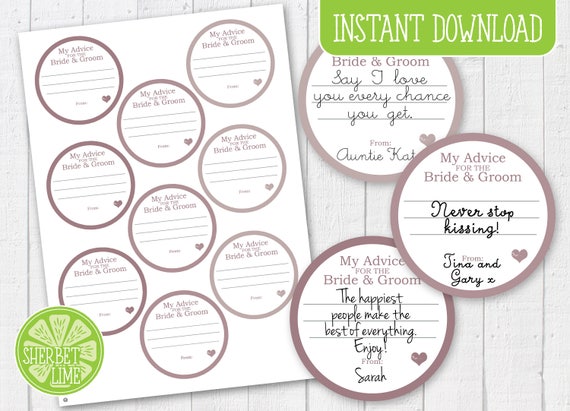 INSTANT DOWNLOAD
My Advice
FOR THE
Bride & Groom
From:
My Advice
FOR THE
Bride & Groom
From:
My Advice
FOR THE
Bride & Groom
From:
My Advice
FOR THE
Bride & Groom
From:
My Advice
FOR THE
Bride & Groom
From:
My Advice
FOR THE
Bride & Groom
From:
My Advice
FOR THE
Bride & Groom
From:
My Advice
FOR THE
Bride & Groom
From:
My Advice
FOR THE
Bride & Groom
From:
Bride & Groom
Say I love
you every chance
you get.
From:
Auntie Kat
My Advice
FOR THE
Bride & Groom
Never stop
kissing!
From:
Tina and
Gary x
My Advice
FOR THE
Bride & Groom
The happiest
people make the
best of everything.
Enjoy!
From:
Sarah
SHERBET
LIME